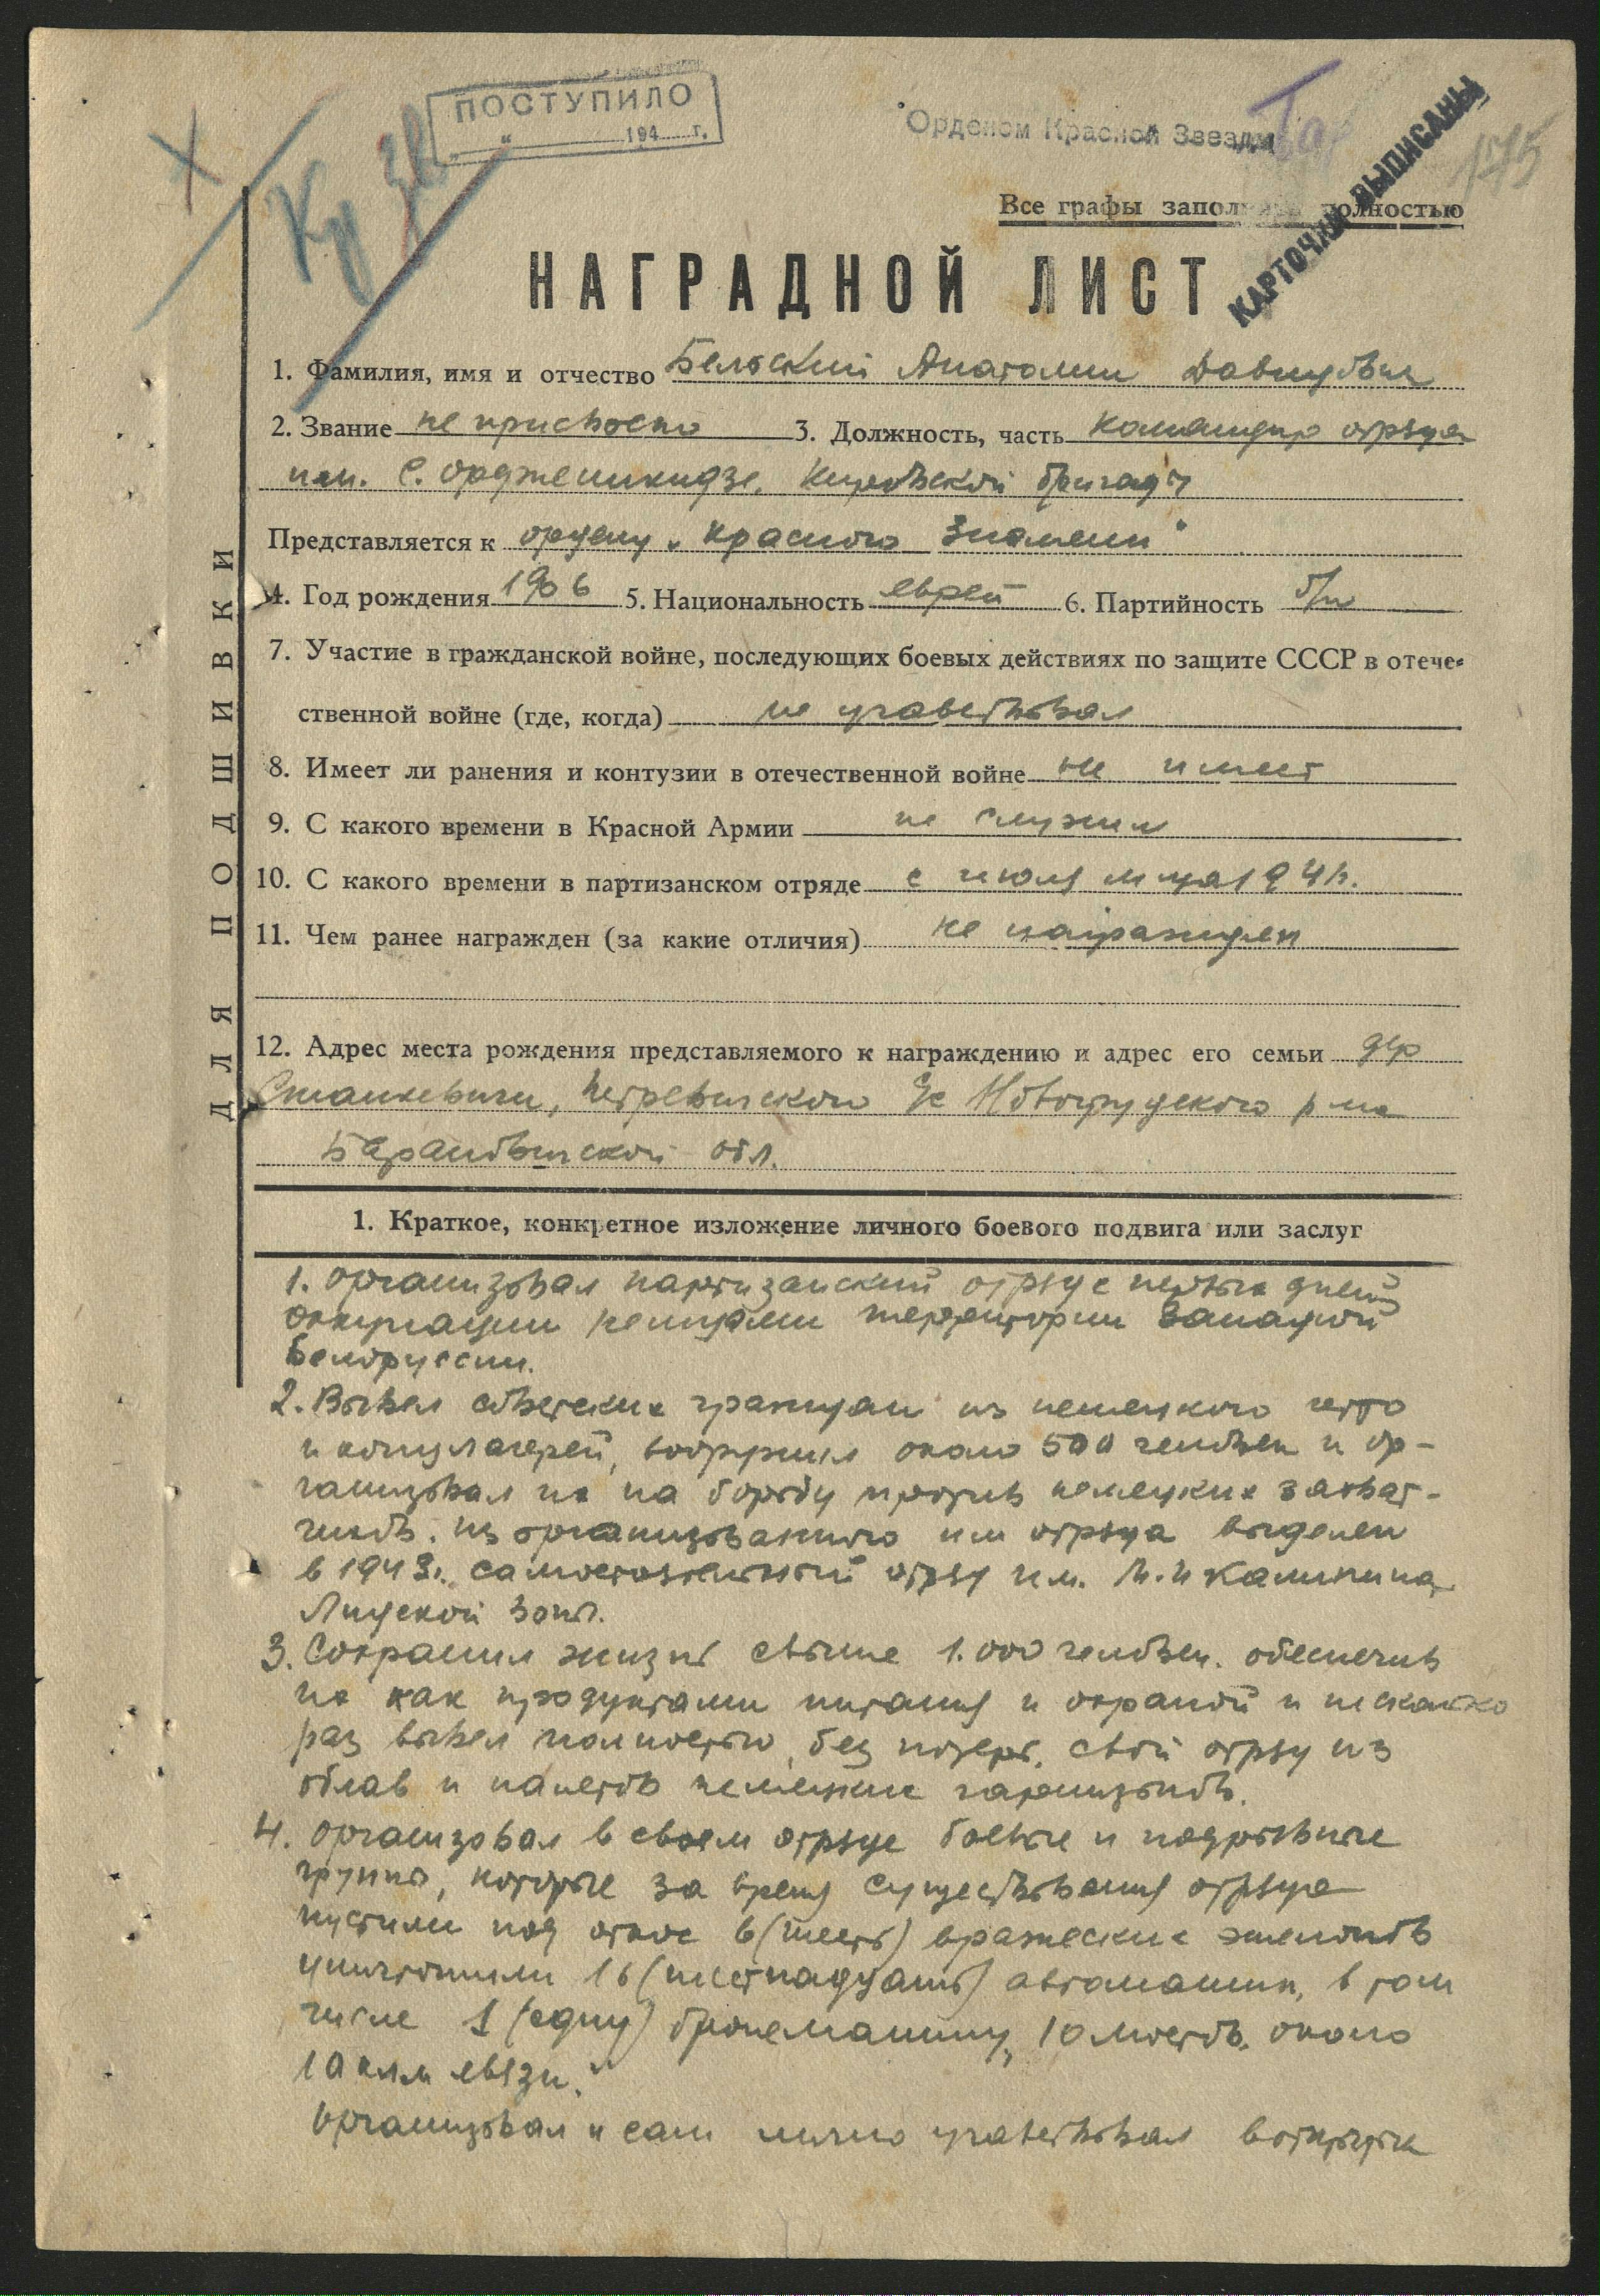 ПОСТУПИЛО
„ “ 194 г.
Орденом Красной Звезды
КАРТОЧКИ ВЫПИСАНЫ
175
Кр Зв
Все графы заполнять полностью
НАГРАДНОЙ ЛИСТ
1. Фамилия, имя и отчество Бельский Анатолий Давидович
2. Звание не присвоено 3. Должность, часть командир отряда
им. С. Орджоникидзе, Кировской бригады
Представляется к ордену „Красного Знамени"
4. Год рождения 1906 5. Национальность еврей 6. Партийность б/п
7. Участие в гражданской войне, последующих боевых действиях по защите СССР в отече-
ственной войне (где, когда) не участвовал
8. Имеет ли ранения и контузии в отечественной войне не имеет
9. С какого времени в Красной Армии не служил
10. С какого времени в партизанском отряде с июля м-ца 1941г.
11. Чем ранее награжден (за какие отличия) не награжден
12. Адрес места рождения представляемого к награждению и адрес его семьи дер
Станкевичи, Петревичского с/с Новогрудского р-на
Барановичской обл.
ДЛЯ ПОДШИВКИ
1. Краткое, конкретное изложение личного боевого подвига или заслуг
1. Организовал партизанский отряд с первых дней
оккупации немцами территории Западной
Белоруссии.
2. Вывел советских граждан из немецкого гетто
и концлагерей, вооружил около 500 человек и ор-
ганизовал их на борьбу против немецких захват-
чиков. Из организованного им отряда выделен
в 1943г. самостоятельный отряд им. М.И Калинина
Лидской зоны.
3. Сохранил жизнь свыше 1.000 человек. обеспечив
их как продуктами питания и охраной и несколько
раз вывел полностью, без потерь, свой отряд из
облав и налетов немецких гарнизонов.
4. Организовал в своем отряде боевые и подрывные
группы, которые за время существования отряда
пустили под откос 6 (шесть) вражеских эшелонов
уничтожили 16 (шестнадцать) автомашин, в том
числе 1 (одну) бронемашину, 10 мостов, около
10 клм связи.
Организовал и сам лично участвовал в открытых